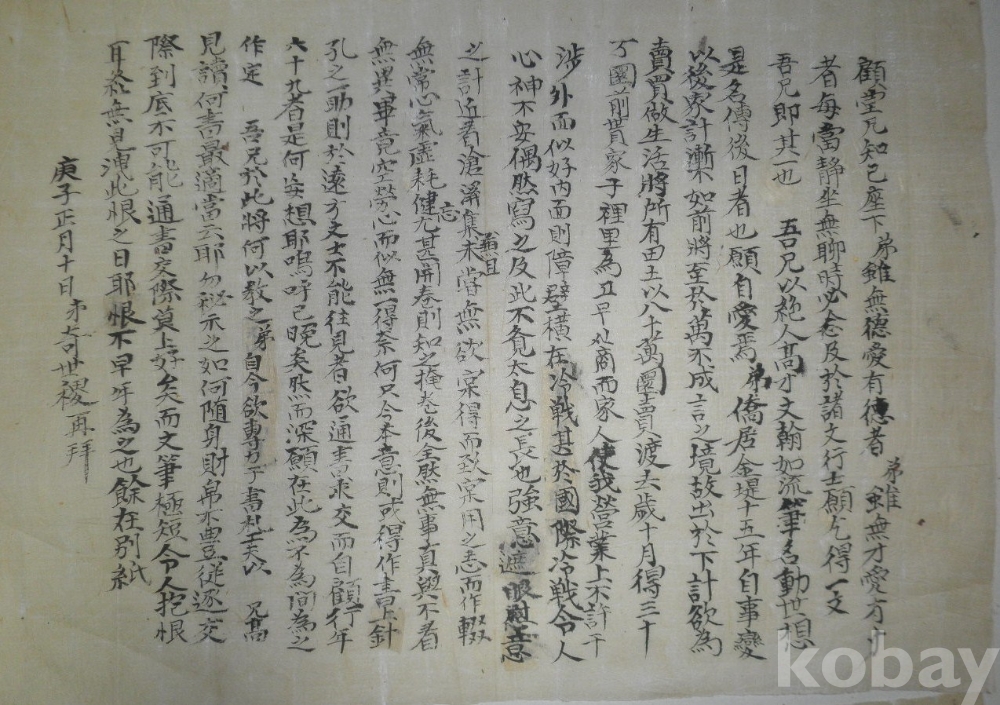 顧堂兄知己座下 弟雖無德愛有德者 弟雖無才愛有才
者每當靜坐無聊時必念及於諸文行士願乞得一交
吾兄即其一也 吾兄以絕人高才文翰如流筆名動世想
是名傳後日者也願自愛焉 弟僑居金堤十五年自事變
以後家計漸不如前將至於萬不成言之境故出於下計欲為
賣買做生活將所有田土以八十萬圜賣渡去歲十月得三十
万圜前貰家于裡里為立早仕商而家人使我營業上不許干
涉外面似好內面則障壁橫在冷戰甚於國際冷戰令人
心神不安偶然寫之及此不覺太息之長也強意遮眼慰意
之計近看滄溟集未嘗無欲寀得而致寀用之志而作輟
無常心氣虛耗健忘尤甚開卷則知之掩卷後全然無事眞與不看
無異畢竟空勞心而似無一得奈何只今本意則或得作書上針
孔之一助則於遠方文士不能往見者欲通書求交而自顧行年
六十九者是何妄想耶嗚呼已晚矣然而深願在此為不為間為之
作定 吾兄於此將何以敎之 弟自今欲專力于書札工夫以 兄高
見讀何書最適當云耶勿秘示之如何隨身財帛不豊從逐交
際到底不可能通書交際莫上好矣而文筆極短令人抱恨
耳終無見洩此恨之日耶恨不早年為之也餘在別紙
庚子正月十日 弟奇世稷再拜
kobay